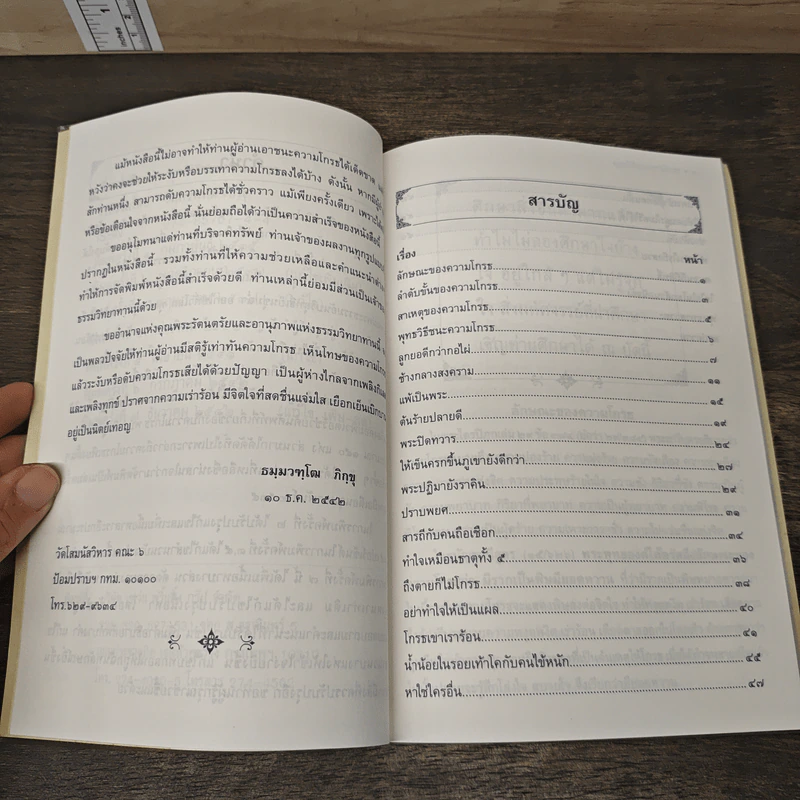 แม้หนังสือนี้ไม่อาจทำให้ท่านผู้อ่านเอาชนะความโกรธได้เด็ดขาด
หวังว่าคงจะช่วยให้ระงับหรือบรรเทาความโกรธลงได้บ้าง ดังนั้น หากมีผู้
สักท่านหนึ่ง สามารถดับความโกรธได้ชั่วคราว แม้เพียงครั้งเดียว เพราะได้
หรือข้อเตือนใจจากหนังสือนี้ นั่นย่อมถือได้ว่าเป็นความสำเร็จของหนังสือนี้
ขออนุโมทนาแด่ท่านที่บริจาคทรัพย์ ท่านเจ้าของผลงานทุกรูป
ปรากฏในหนังสือนี้ รวมทั้งท่านที่ให้ความช่วยเหลือและคำแนะนำ
ทำให้การจัดพิมพ์หนังสือนี้สำเร็จด้วยดี ท่านเหล่านี้ย่อมมีส่วนเป็นเจ้าของ
ธรรมวิทยาทานนี้ด้วย
ขออำนาจแห่งคุณพระรัตนตรัยและอานุภาพแห่งธรรมวิทยาทานนี้
เป็นพลวปัจจัยให้ท่านผู้อ่านมีสติรู้เท่าทันความโกรธ เห็นโทษของความโกรธ
แล้วระงับหรือดับความโกรธเสียได้ด้วยปัญญา เป็นผู้ห่างไกลจากเพลิงกิเลส
และเพลิงทุกข์ ปราศจากความเร่าร้อน มีจิตใจที่สดชื่นแจ่มใส เยือกเย็นเบิกบาน
อยู่เป็นนิตย์เทอญ
ธมฺมวฑฺโฒ ภิกฺขุ
๑๐ ธ.ค. ๒๕๔๒
วัดโสมนัสวิหาร คณะ ๖
ป้อมปราบฯ กทม. ๑๐๑๐๐
โทร.๖๒๙-๙๖๓๔
สารบัญ
เรื่อง หน้า
ลักษณะของความโกรธ ๑
ลำดับขั้นของความโกรธ ๓
สาเหตุของความโกรธ ๕
พุทธวิธีชนะความโกรธ ๖
ลูกยอดีกว่ากอไผ่ ๗
ช้างกลางสงคราม ๑๑
แพ้เป็นพระ ๑๕
ต้นร้ายปลายดี ๑๙
พระปิดทวาร ๒๔
ให้เข็นครกขึ้นภูเขายังดีกว่า ๒๗
พระปฏิมายังราคิน ๒๙
ปราบพยศ ๓๑
สารถีกับคนถือเชือก ๓๔
ทำใจเหมือนธาตุทั้ง ๕ ๓๖
ถึงตายก็ไม่โกรธ ๓๘
อย่าทำใจให้เป็นแผล ๔๐
โกรธเขาเราร้อน ๔๑
น้ำน้อยในรอยเท้าโคกับคนไข้หนัก ๔๕
หาใช่ใครอื่น ๔๗